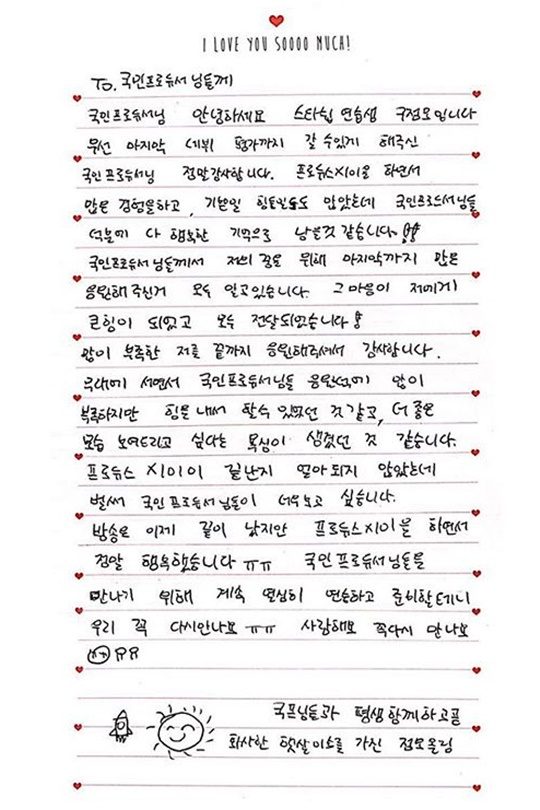 I LOVE YOU SOOOO MUCH!
To. 국민프로듀서님들께
국민프로듀서님 안녕하세요 스타쉽 연습생 구정모입니다
우선 마지막 데뷔 평가까지 갈 수있게 해주신
국민프로듀서님 정말감사합니다. 프로듀스X101을 하면서
많은 경험을하고, 기쁜일 힘든일들도 많았는데 국민프로듀서님들
덕분에 다 행복한 기억으로 남을것 같습니다!!
국민프로듀서님들께서 저의 꿈을 위해 마지막까지 많은
응원해주신거 모두 알고있습니다. 그 마음이 저에게
큰힘이 되었고 모두 전달되었습니다!
많이 부족한 저를 끝까지 응원해주셔서 감사합니다.
무대에 서면서 국민프로듀서님들 응원덕에 많이
부족하지만 힘을 내서 할수 있었던 것 같고, 더 좋은
모습 보여드리고 싶다는 욕심이 생겼던 것 같습니다.
프로듀스 X101이 끝난지 얼마되지 않았는데
벌써 국민프로듀서님들이 너무보고 싶습니다.
방송은 이제 끝이 났지만 프로듀스X101을 하면서
정말 행복했습니다 ㅠㅠ 국민프로듀서님들을
만나기 위해 계속 열심히 연습하고 준비할테니
우리 꼭 다시만나요 ㅠㅠ 사랑해요 꼭다시 만나요
국프님들과 평생함께하고픈
화사한 햇살미소를 가진 정모올림